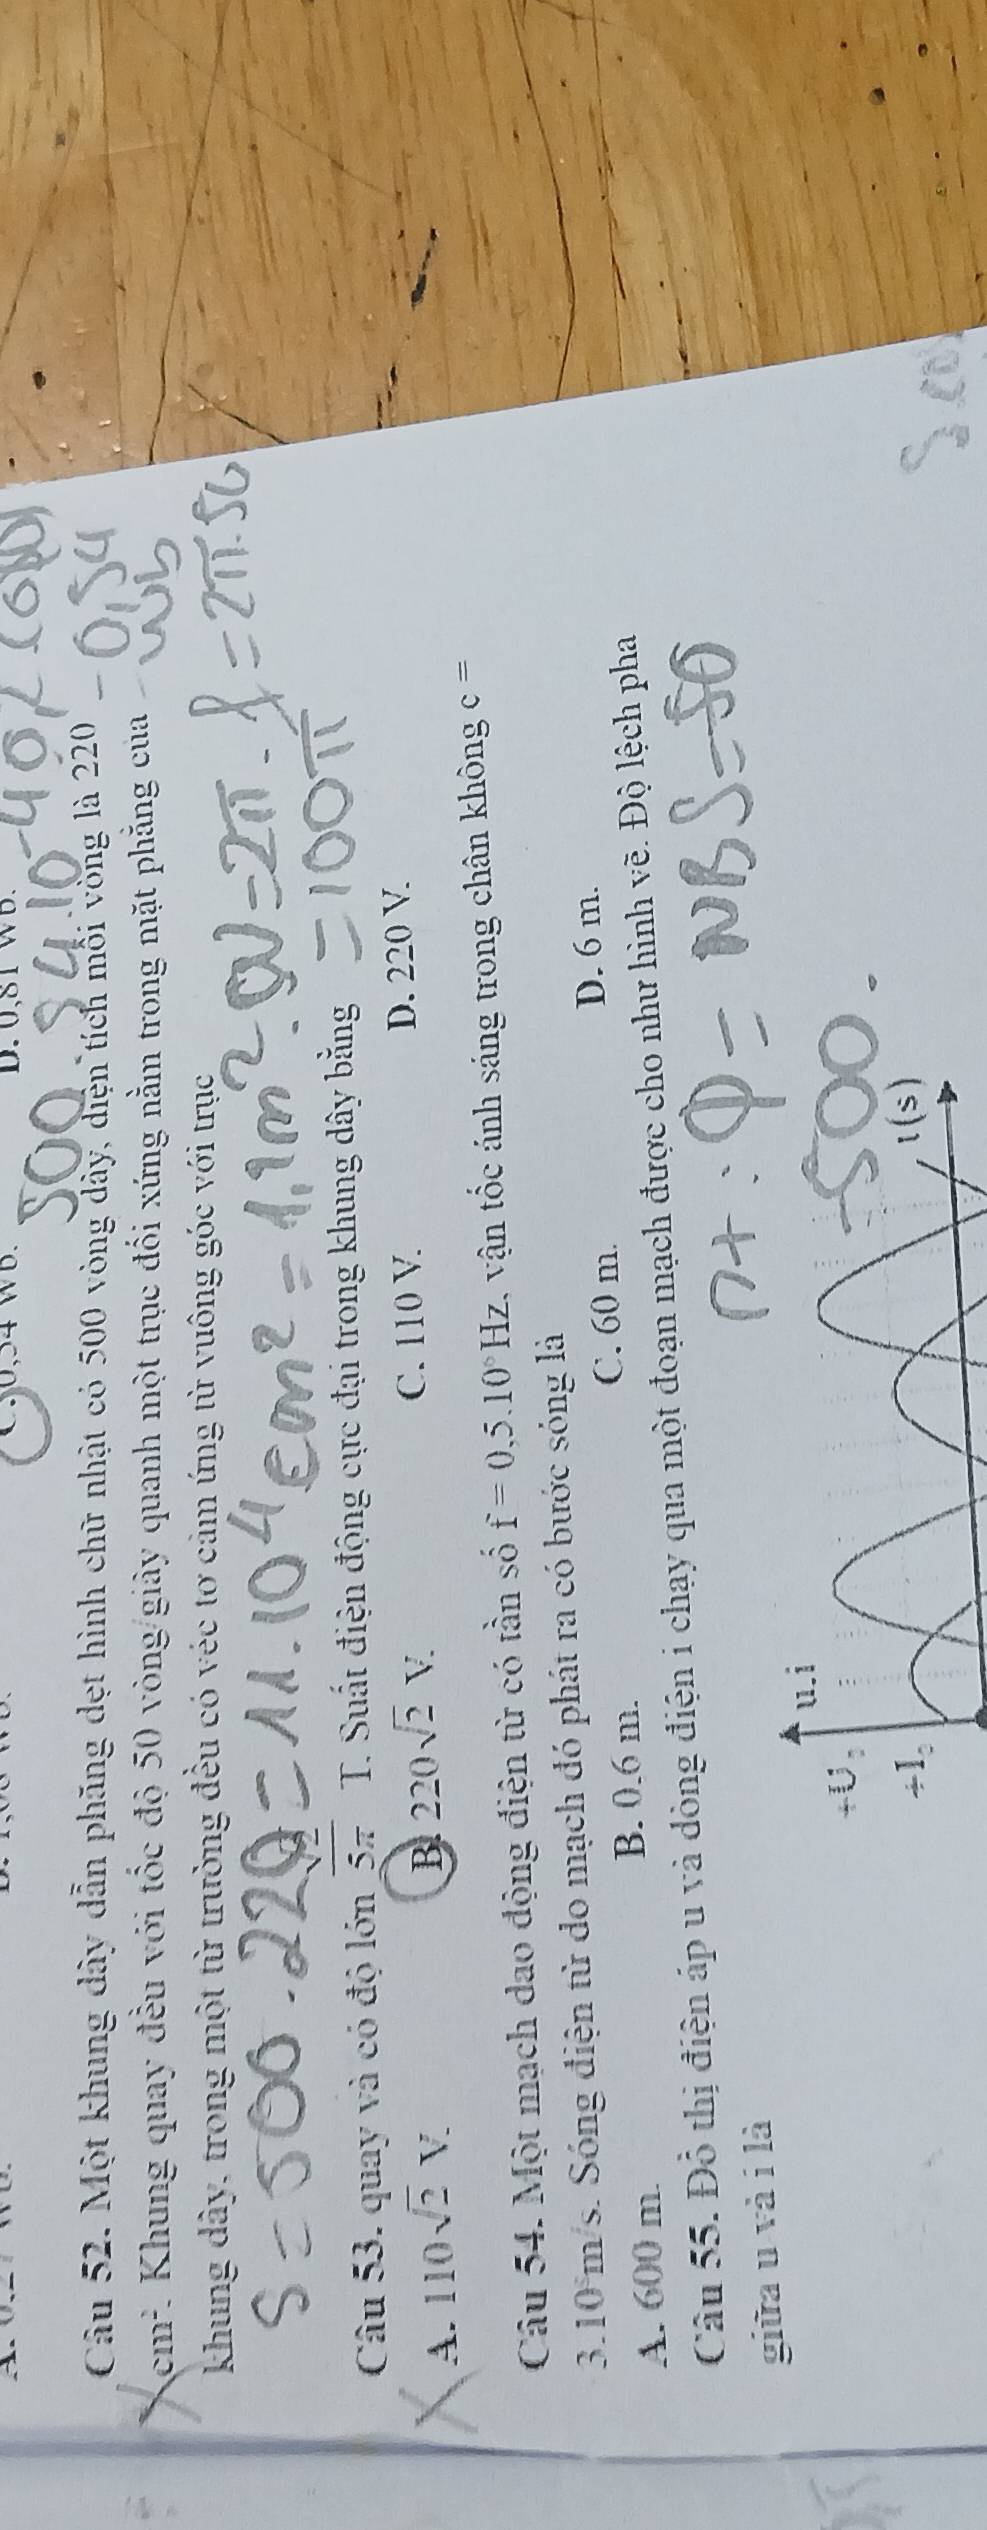 C. 0,54 Wb.
D. 0,81 Wb.
500 . 54.10⁻⁴
Câu 52. Một khung dây dẫn phẳng dẹt hình chữ nhật có 500 vòng dây, diện tích mỗi vòng là 220
- 0,54
cm². Khung quay đều với tốc độ 50 vòng/giây quanh một trục đối xứng nằm trong mặt phẳng của
Wb
khung dây, trong một từ trường đều có véc tơ cảm ứng từ vuông góc với trục
S = 500 . 220 = 11.10⁴ cm² = 1,1m²
ω = 2π . f = 2π.50
= 100π
Câu 53. quay và có độ lớn √2/5π T. Suất điện động cực đại trong khung dây bằng
A. 110√2 V.
B. 220√2 V.
C. 110 V.
D. 220 V.
Câu 54. Một mạch dao động điện từ có tần số f = 0,5.10⁶ Hz, vận tốc ánh sáng trong chân không c =
3.10⁸m/s. Sóng điện từ do mạch đó phát ra có bước sóng là
A. 600 m.
B. 0,6 m.
C. 60 m.
D. 6 m.
Câu 55. Đồ thị điện áp u và dòng điện i chạy qua một đoạn mạch được cho như hình vẽ. Độ lệch pha
giữa u và i là
Φ = NBS = 50
500 .
u.i
+U₀
+I₀
t(s)